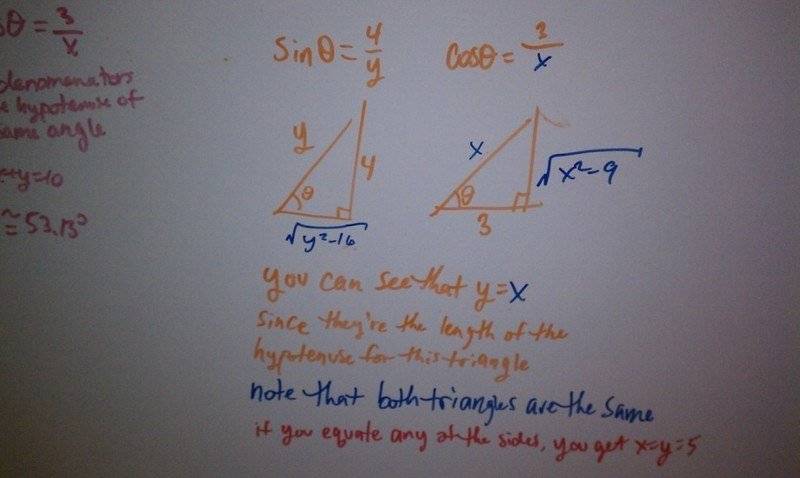 sθ = 3/x
denomenators
e hypotenuse of
same angle
x+y=10
≈ 53.13°
sinθ = 4/y
cosθ = 3/x
y
4
θ
√y²-16
x
√x²-9
θ
3
you can see that y=x
since they're the length of the
hypotenuse for this triangle
note that both triangles are the same
if you equate any of the sides, you get x=y=5